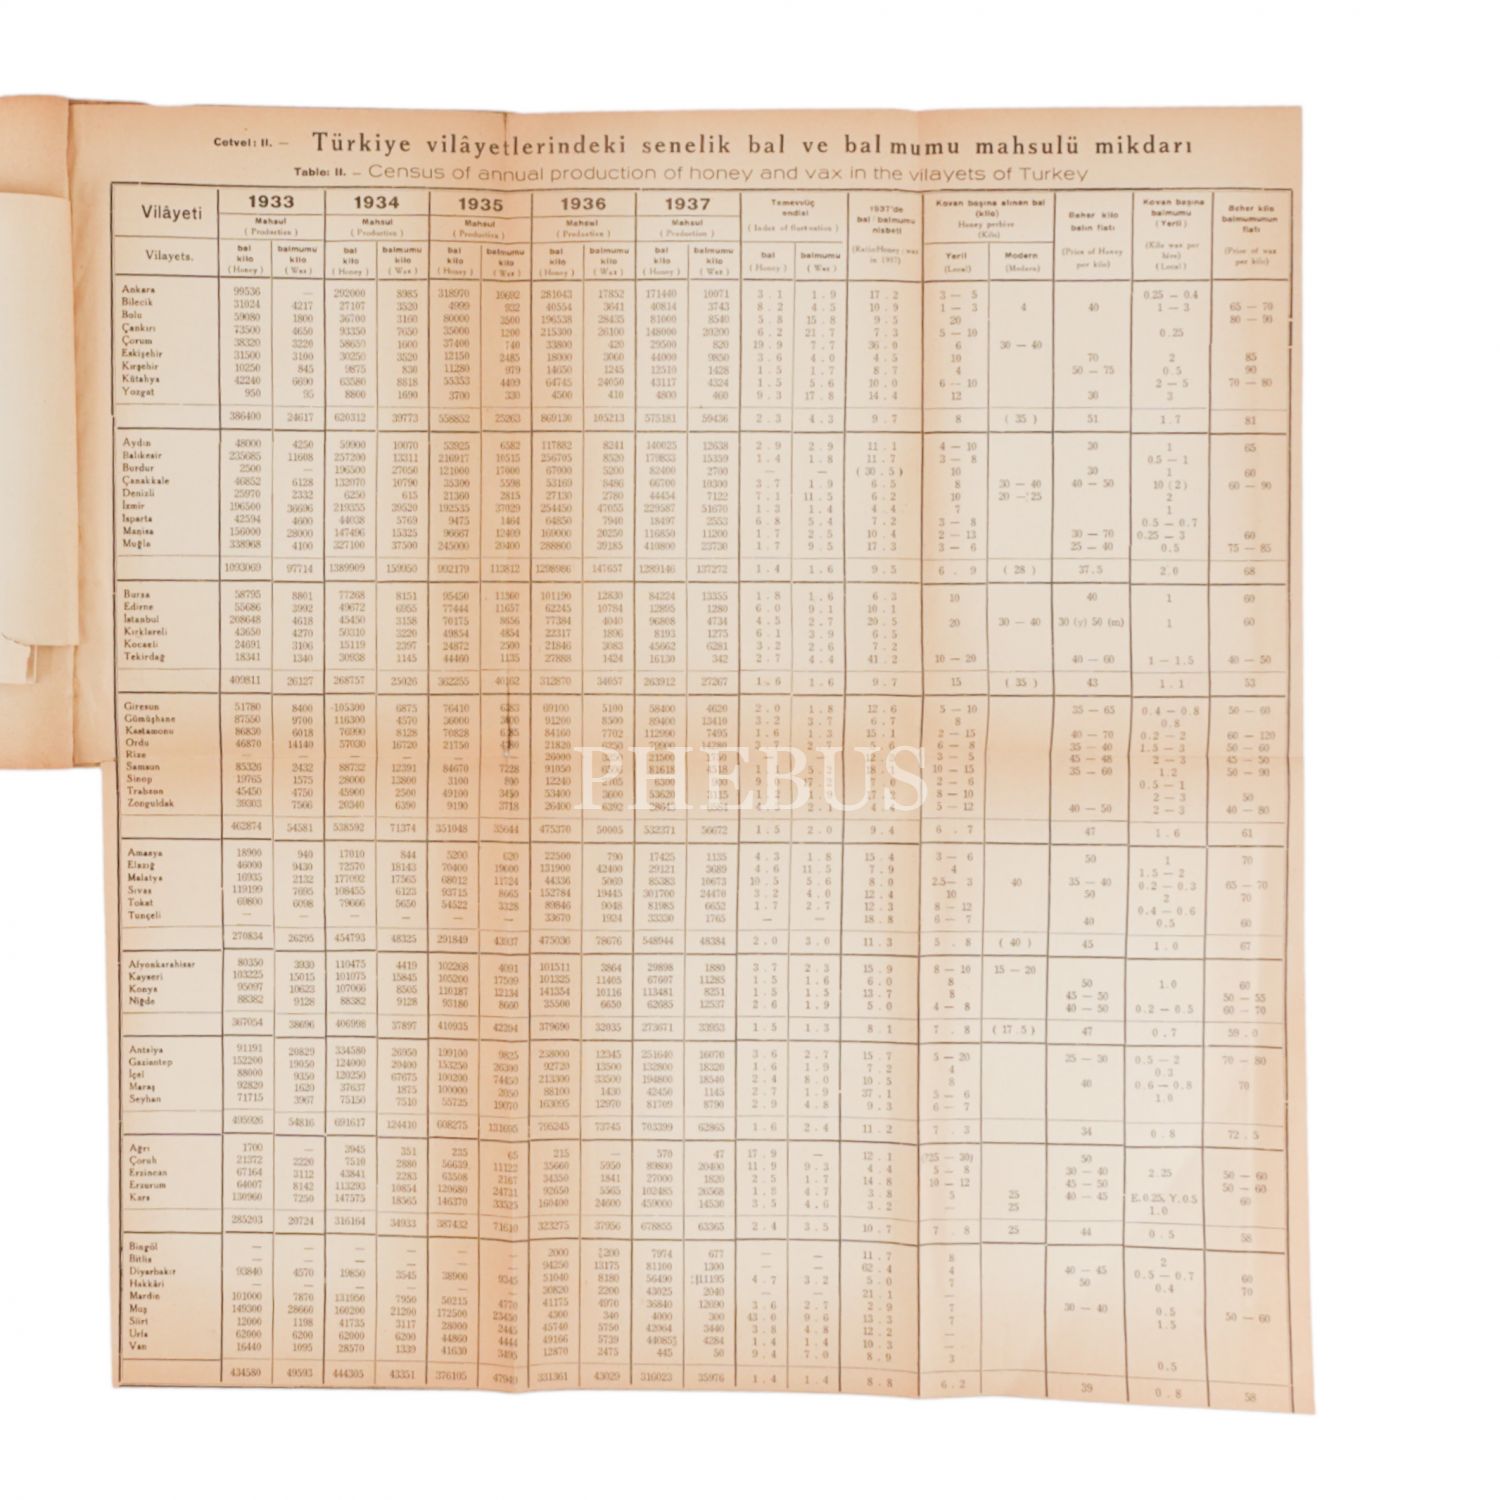 Cetvel: II. — Türkiye vilâyetlerindeki senelik bal ve balmumu mahsulü mikdarı
Table: II. – Census of annual production of honey and vax in the vilayets of Turkey
Vilâyeti 1933 1934 1935 1936 1937 Temevvüç endisi 1937'de bal : balmumu nisbeti Kovan başına alınan bal (kilo) Beher kilo balın fiatı Kovan başına balmumu (Yerli) Beher kilo balmumunun fiatı
Mahsul Mahsul Mahsul Mahsul Mahsul
( Production ) ( Production ) ( Production ) ( Production ) ( Production ) ( Index of fluctuation ) Honey perhive (Kilo)
Vilayets. bal kilo balmumu kilo bal kilo balmumu kilo bal kilo balmumu kilo bal kilo balmumu kilo bal kilo balmumu kilo bal balmumu Yerli Modern
( Honey ) ( Wax ) ( Honey ) ( Wax ) ( Honey ) ( Wax ) ( Honey ) ( Wax ) ( Honey ) ( Wax ) ( Honey ) ( Wax ) (Local) (Modern) (Price of Honey per kilo) (Kilo wax per hive) (Local) (Price of wax per kilo)
Ankara 99536 — 292000 8985 318970 10692 281043 17852 171440 10071 3 . 1 1 . 9 17 . 2 3 — 5 0.25 — 0.4
Bilecik 31024 4217 27107 3520 4999 932 40554 3641 40814 3743 8 . 2 4 . 5 10 . 9 1 — 3 4 40 1 — 3 65 — 70
Bolu 59080 1800 36700 3160 80000 3500 196538 28435 81000 8540 5 . 8 15 . 8 9 . 5 20 80 — 90
Çankırı 73500 4650 93350 7650 35000 1200 215300 26100 148000 20200 6 . 2 21 . 7 7 . 3 5 — 10 0.25
Çorum 38320 3220 58650 1600 37400 740 33800 420 29500 820 19 . 9 7 . 7 36 . 0 6 30 — 40
Eskişehir 31500 3100 30250 3520 12150 2485 18000 3060 44000 9850 3 . 6 4 . 0 4 . 5 10 70 2 85
Kırşehir 10250 845 9875 830 11280 979 14050 1245 12510 1428 1 . 5 1 . 7 8 . 7 4 50 — 75 0.5 90
Kütahya 42240 6690 63580 8818 55353 4499 64745 24050 43117 4324 1 . 5 5 . 6 10 . 0 6 — 10 2 — 5 70 — 80
Yozgat 950 95 8800 1690 3700 330 4500 410 4800 460 9 . 3 17 . 8 14 . 4 12 30 3
386400 24617 620312 39773 558852 25263 869130 105213 575181 59436 2 . 3 4 . 3 9 . 7 8 ( 35 ) 51 1 . 7 81
Aydın 48000 4250 59900 10070 53925 6582 117882 8241 140025 12638 2 . 9 2 . 9 11 . 1 4 — 10 30 1 65
Balıkesir 235685 11608 257200 13311 216917 10515 256705 8520 179833 15359 1 . 4 1 . 8 11 . 7 3 — 8 0.5 — 1
Burdur 2500 — 196500 27050 121000 17000 67000 5200 82400 2700 — — ( 30 . 5 ) 10 30 1 60
Çanakkale 46852 6128 132070 10790 35300 5598 53169 8486 66700 10300 3 . 7 1 . 9 6 . 5 8 30 — 40 40 — 50 10 (2) 60 — 90
Denizli 25970 2332 6250 615 21360 2815 27130 2780 44454 7122 7 . 1 11 . 5 6 . 2 10 20 — 25 2
İzmir 196500 36696 219355 39520 192535 37029 254450 47055 229587 51670 1 . 3 1 . 4 4 . 4 7 1
Isparta 42594 4600 44038 5769 9475 1464 64850 7940 18497 2553 6 . 8 5 . 4 7 . 2 3 — 8 0.5 — 0.7
Manisa 156000 28000 147496 15325 96667 12409 169000 20250 116850 11200 1 . 7 2 . 5 10 . 4 2 — 13 30 — 70 0.25 — 3 60
Muğla 338968 4100 327100 37500 245000 20400 288800 39185 410800 23730 1 . 7 9 . 5 17 . 3 3 — 6 25 — 40 0.5 75 — 85
1093069 97714 1389909 159950 992179 113812 1298986 147657 1289146 137272 1 . 4 1 . 6 9 . 5 6 . 9 ( 28 ) 37.5 2.0 68
Bursa 58795 8801 77268 8151 95450 13360 101190 12830 84224 13355 1 . 8 1 . 6 6 . 3 10 40 1 60
Edirne 55686 3992 49672 6955 77444 11657 62245 10784 12895 1280 6 . 0 9 . 1 10 . 1
İstanbul 208648 4618 45450 3158 70175 8656 77384 4040 96808 4734 4 . 5 2 . 7 20 . 5 20 30 — 40 30 (y) 50 (m) 1 60
Kırklareli 43650 4270 50310 3220 49854 4854 22317 1896 8193 1275 6 . 1 3 . 9 6 . 5
Kocaeli 24691 3106 15119 2397 24872 2500 21846 3083 45662 6281 3 . 2 2 . 6 7 . 2
Tekirdağ 18341 1340 30938 1145 44460 1135 27888 1424 16130 342 2 . 7 4 . 4 41 . 2 10 — 20 40 — 60 1 — 1.5 40 — 50
409811 26127 268757 25026 362255 40162 312870 34057 263912 27267 1 . 6 1 . 6 9 . 7 15 ( 35 ) 43 1 . 1 53
Giresun 51780 8400 105300 6875 76410 69100 5100 58400 4620 2 . 0 1 . 8 12 . 6 5 — 10 35 — 65 0.4 — 0.8 50 — 60
Gümüşhane 87550 9700 116300 4570 36000 91200 8500 89400 13410 3 . 2 3 . 7 6 . 7 8 0.8
Kastamonu 86830 6018 76990 8128 70828 84160 7702 112990 7495 1 . 6 1 . 3 15 . 1 2 — 15 40 — 70 0.2 — 2 60 — 120
Ordu 46870 14140 57030 16720 21750 21820 6 — 8 35 — 40 1.5 — 3 50 — 60
Rize — — — — — — 26000 21500 3 — 5 45 — 48 2 — 3 45 — 50
Samsun 85326 2432 88732 12391 84670 7228 91050 81618 10 — 15 35 — 60 1.2 50 — 90
Sinop 19765 1575 28000 13800 3100 800 12240 6300 2 — 6 0.5 — 1
Trabzon 45450 4750 45900 2500 49100 3450 53400 3600 53620 8 — 10 2 — 3 50
Zonguldak 39303 7566 20340 6390 9190 3718 26400 6392 5 — 12 40 — 50 2 — 3 40 — 80
462874 54581 538592 71374 351048 35644 475370 50005 532371 56672 1 . 5 2 . 0 9 . 4 6 . 7 47 1 . 6 61
PHEBUS
Amasya 18900 940 17010 844 5200 620 22500 790 17425 1135 4 . 3 1 . 8 15 . 4 3 — 6 50 1 70
Elazığ 46000 9430 72570 18143 70400 19600 131900 42400 29121 3689 4 . 6 11 . 5 7 . 9 4 1.5 — 2
Malatya 16935 2132 177092 17565 68012 11724 44336 5069 85383 10673 10 . 5 5 . 6 8 . 0 2.5— 3 40 35 — 40 0.2 — 0.3 65 — 70
Sıvas 119199 7695 108455 6123 93715 8665 152784 19445 301700 24470 3 . 2 4 . 0 12 . 4 10 50 2 70
Tokat 69800 6098 79666 5650 54522 3328 89846 9048 81985 6652 1 . 7 2 . 7 12 . 3 8 — 12 0.4 — 0.6
Tunçeli — — — — — — 33670 1924 33330 1765 — — 18 . 8 6 — 7 40 0.5 60
270834 26295 454793 48325 291849 43937 475036 78676 548944 48384 2 . 0 3 . 0 11 . 3 5 . 8 ( 40 ) 45 1 . 0 67
Afyonkarahisar 80350 3930 110475 4419 102268 4091 101511 3864 29898 1880 3 . 7 2 . 3 15 . 9 8 — 10 15 — 20
Kayseri 103225 15015 101075 15845 105200 17509 101325 11405 67607 11285 1 . 5 1 . 6 6 . 0 8 50 1.0 60
Konya 95097 10623 107066 8505 110187 12134 141354 10116 113481 8251 1 . 5 1 . 5 13 . 7 8 45 — 50 50 — 55
Niğde 88382 9128 88382 9128 93180 8660 35500 6650 62685 12537 2 . 6 1 . 9 5 . 0 4 — 8 40 — 50 0.2 — 0.5 60 — 70
367054 38696 406998 37897 410935 42394 379690 32035 273671 33953 1 . 5 1 . 3 8 . 1 7 . 8 ( 17.5 ) 47 0 . 7 59 . 0
Antalya 91191 20829 334580 26950 199100 9825 238000 12345 251640 16070 3 . 6 2 . 7 15 . 7 5 — 20 25 — 30 0.5 — 2 70 — 80
Gaziantep 152200 19050 124000 20400 153250 26300 92720 13500 132800 18320 1 . 6 1 . 9 7 . 2 4 0.3
İçel 88000 9350 120250 67675 100200 74450 213300 33500 194800 18540 2 . 4 8 . 0 10 . 5 8 40 0.6 — 0.8 70
Maraş 92820 1620 37637 1875 100000 2050 88100 1430 42450 1145 2 . 7 1 . 9 37 . 1 5 — 6 1.0
Seyhan 71715 3967 75150 7510 55725 19070 163095 12970 81709 8790 2 . 9 4 . 8 9 . 3 6 — 7
495926 54816 691617 124410 608275 131695 795245 73745 703399 62865 1 . 6 2 . 4 11 . 2 7 . 3 34 0 . 8 72 . 5
Ağrı 1700 — 3945 351 235 65 215 — 570 47 17 . 9 — 12 . 1 (?25 — 30) 50
Çoruh 21372 2220 7510 2880 56639 11122 35660 5950 89800 20400 11 . 9 9 . 3 4 . 4 5 — 8 30 — 40 2.25 50 — 60
Erzincan 67164 3112 43841 2283 63508 2167 34350 1841 27000 1820 2 . 5 1 . 7 14 . 8 10 — 12 45 — 50 50 — 60
Erzurum 64007 8142 113293 10854 120680 24731 92650 5565 102485 26568 1 . 8 4 . 7 3 . 8 5 25 40 — 45 E.0.25, Y.0.5 60
Kars 130960 7250 147575 18565 146370 33525 160400 24600 459000 14530 3 . 5 4 . 6 3 . 2 — 25 1.0
285203 20724 316164 34933 387432 71610 323275 37956 678855 63365 2 . 4 3 . 5 10 . 7 7 . 8 25 44 0 . 5 58
Bingöl — — — — — — 2000 200 7974 677 — — 11 . 7 8
Bitlis — — — — — — 94250 13175 81100 1300 — — 62 . 4 4 2
Diyarbakır 93840 4570 19850 3545 38900 9345 51040 8180 56490 11195 4 . 7 3 . 2 5 . 0 7 40 — 45 0.5 — 0.7 60
Hakkâri — — — — — — 30820 2200 43025 2040 — — 21 . 1 — 50 0.4 70
Mardin 101000 7870 131950 7950 50215 4770 41175 4970 36840 12690 3 . 6 2 . 7 2 . 9 7 30 — 40 0.5 50 — 60
Muş 149300 28660 160200 21200 172500 23450 4300 340 4000 300 43 . 0 9 . 6 13 . 3 7 1.5
Siirt 12000 1198 41735 3117 28000 2445 45740 5750 42064 3440 3 . 8 4 . 8 12 . 2 —
Urfa 62000 6200 62000 6200 44860 4444 49166 5739 44085 4284 1 . 4 1 . 4 10 . 3 —
Van 16440 1095 28570 1339 41630 3495 12870 2475 445 50 9 . 4 7 . 0 8 . 9 3 0.5
434580 49593 444305 43351 376105 47949 331361 43029 316023 35976 1 . 4 1 . 4 8 . 8 6 . 2 39 0 . 8 58